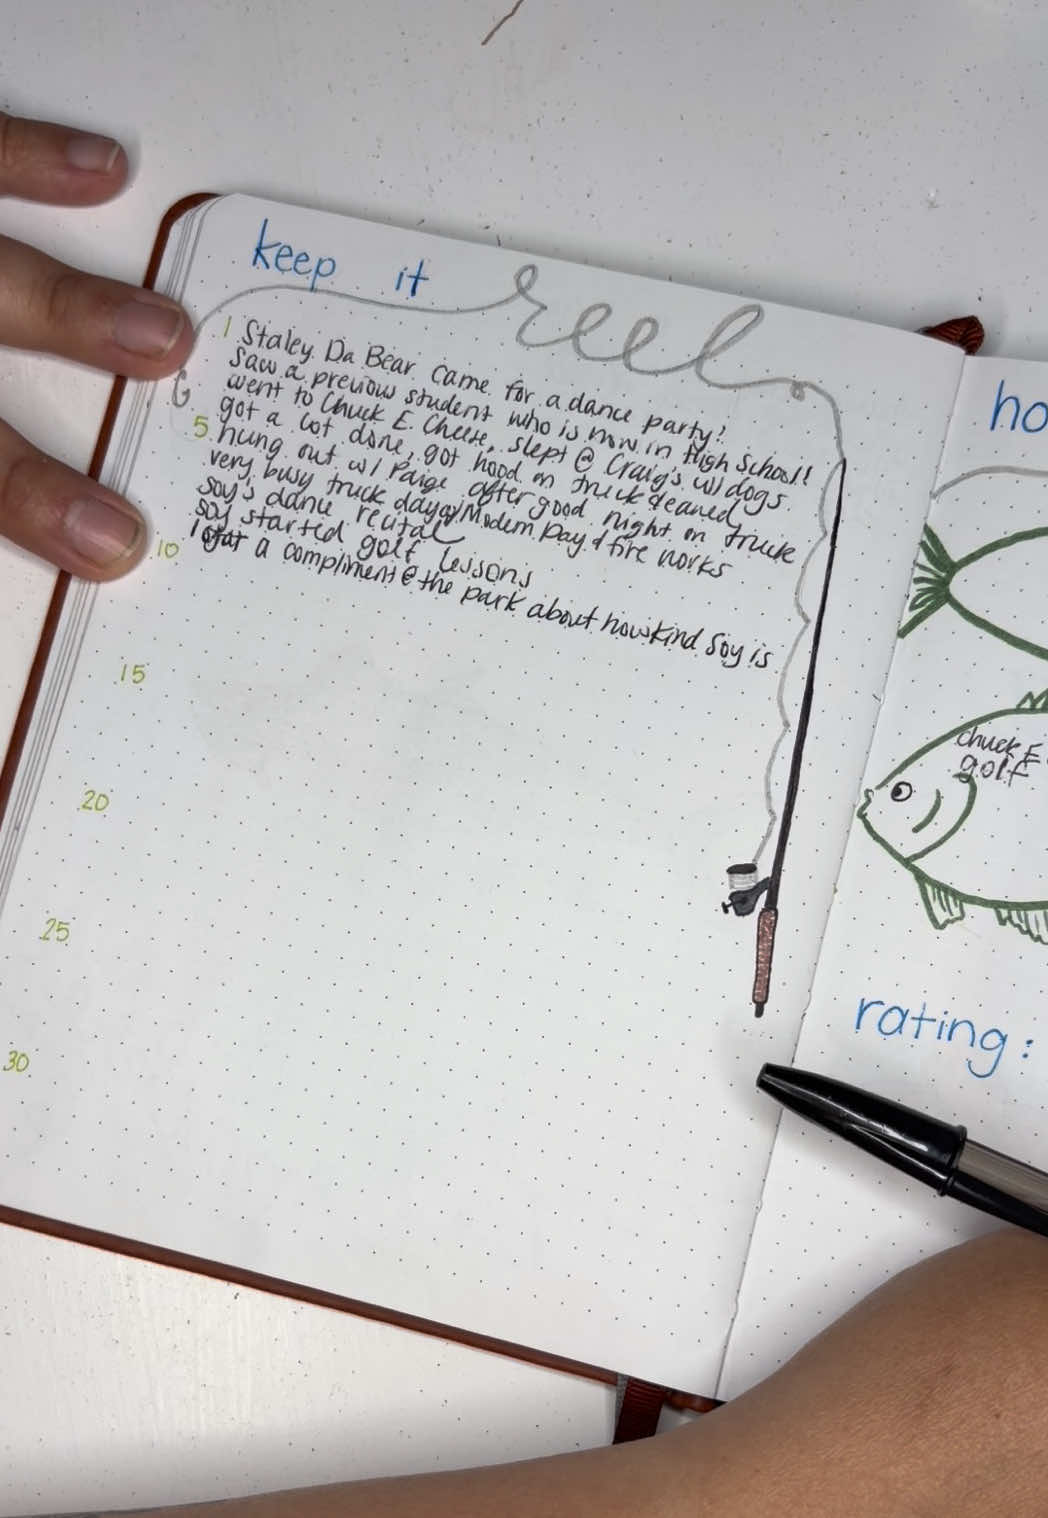 keep it reel
1 Staley Da Bear came for a dance party!
saw a previous student who is now in High School!
went to Chuck E. Cheese, slept @ Craig's w/ dogs
got a lot done, got hood on truck cleaned
5 hung out w/ Paige after good night on truck
very busy truck day @ Modern Day & fire works
soy's dance recital
soy started golf lessons
10 I got a compliment @ the park about how kind Soy is
15
20
25
30
ho
chuck E
golf
rating: